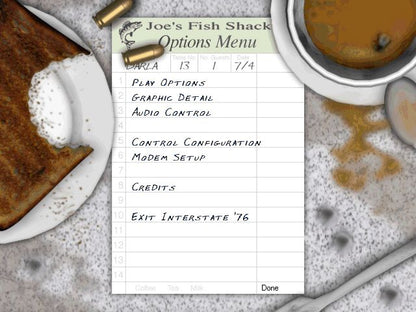 Joe's Fish Shack
Options Menu
Table No. No. Guests Date
DARLA 13 1 7/4
1 PLAY OPTIONS
2 GRAPHIC DETAIL
3 AUDIO CONTROL
4
5 CONTROL CONFIGURATION
6 MODEM SETUP
7
8 CREDITS
9
10 EXIT INTERSTATE '76
11
12
13
14
Coffee Tea Milk Done